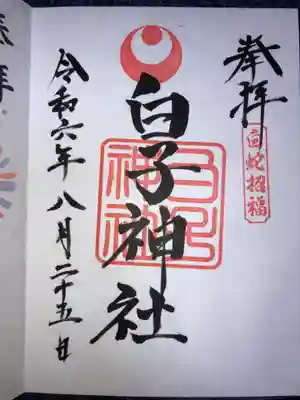 奉拝
白蛇招福
白子神社
令和六年八月二十五日